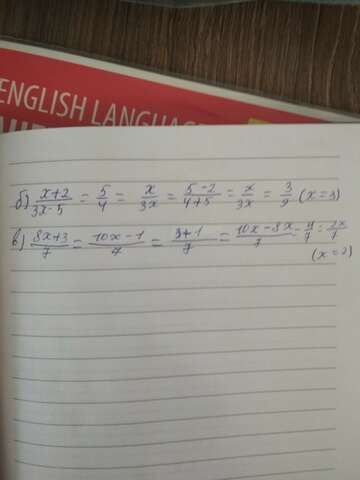 ENGLISH LANGUAG
б) x+2/3x-5 = 5/4 = x/3x = 5-2/4+5 = x/3x = 3/9 (x=3)
в) 8x+3/7 = 10x-1/7 = 3+1/7 = 10x-8x/7 = 4/7 = 2x/7
(x=2)